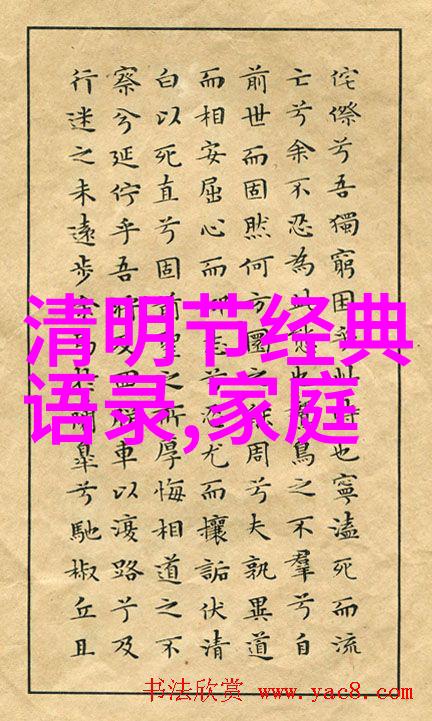 佗傺兮吾獨窮困也寧溘死而流
亡兮余不忍為也鳥之不羣兮自
前世而固然何方圜之周兮夫孰異道
而相安屈心而志兮尤而攘詬伏清
白以死直兮固前之所厚悔相道之不
察兮延佇乎吾車以復路兮及
行迷之未遠步皋兮馳椒丘且
清明节经典
语录,家庭
书法欣赏 www.yac8.com